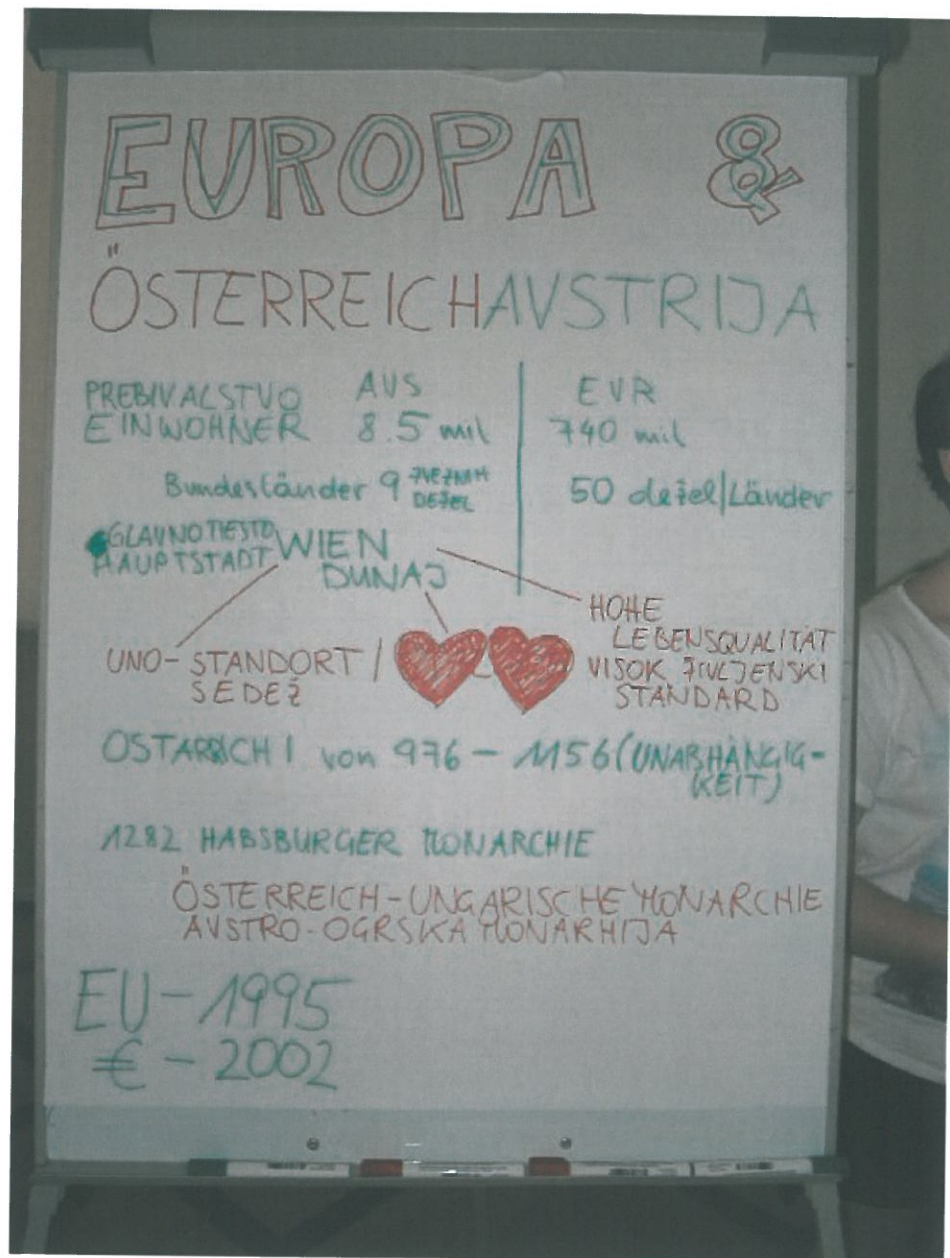 EUROPA &
ÖSTERREICH AVSTRIJA
PREBIVALSTVO AVS EVR
EINWOHNER 8.5 mil 740 mil
Bundesländer 9 ZVEZNIH DEŽEL 50 dežel/Länder
GLAVNO MESTO WIEN
HAUPTSTADT DUNAJ
HOHE
LEBENSQUALITÄT
VISOK ŽIVLJENSKI
STANDARD
UNO-STANDORT /
SEDEŽ
von 976 - 1156 (UNABHÄNGIG-
KEIT)
1282 HABSBURGER MONARCHIE
ÖSTERREICH-UNGARISCHE MONARCHIE
AVSTRO-OGRSKA MONARHIJA
EU - 1995
€ - 2002